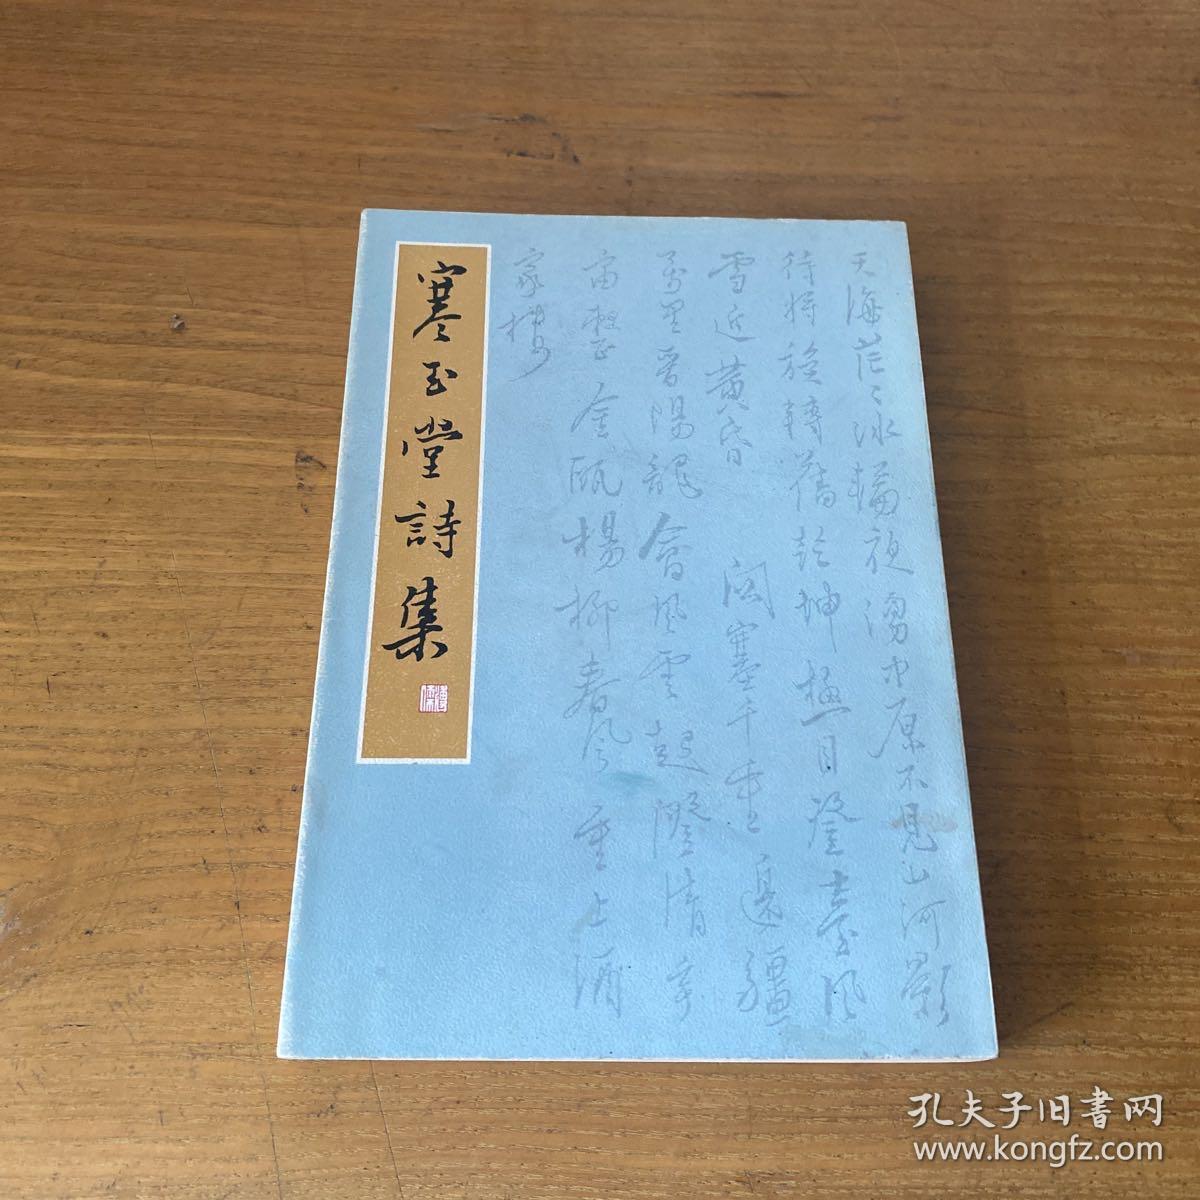 寒玉堂詩集
天海茫〻冰輪夜湧中原不見山河影
待將旋轉舊乾坤極目登臺風
雪近黃昏 關塞千重邊疆
萬里晉陽龍會風雲起澄清
宙整金甌楊柳春風重上酒
家樓
孔夫子旧书网
www.kongfz.com